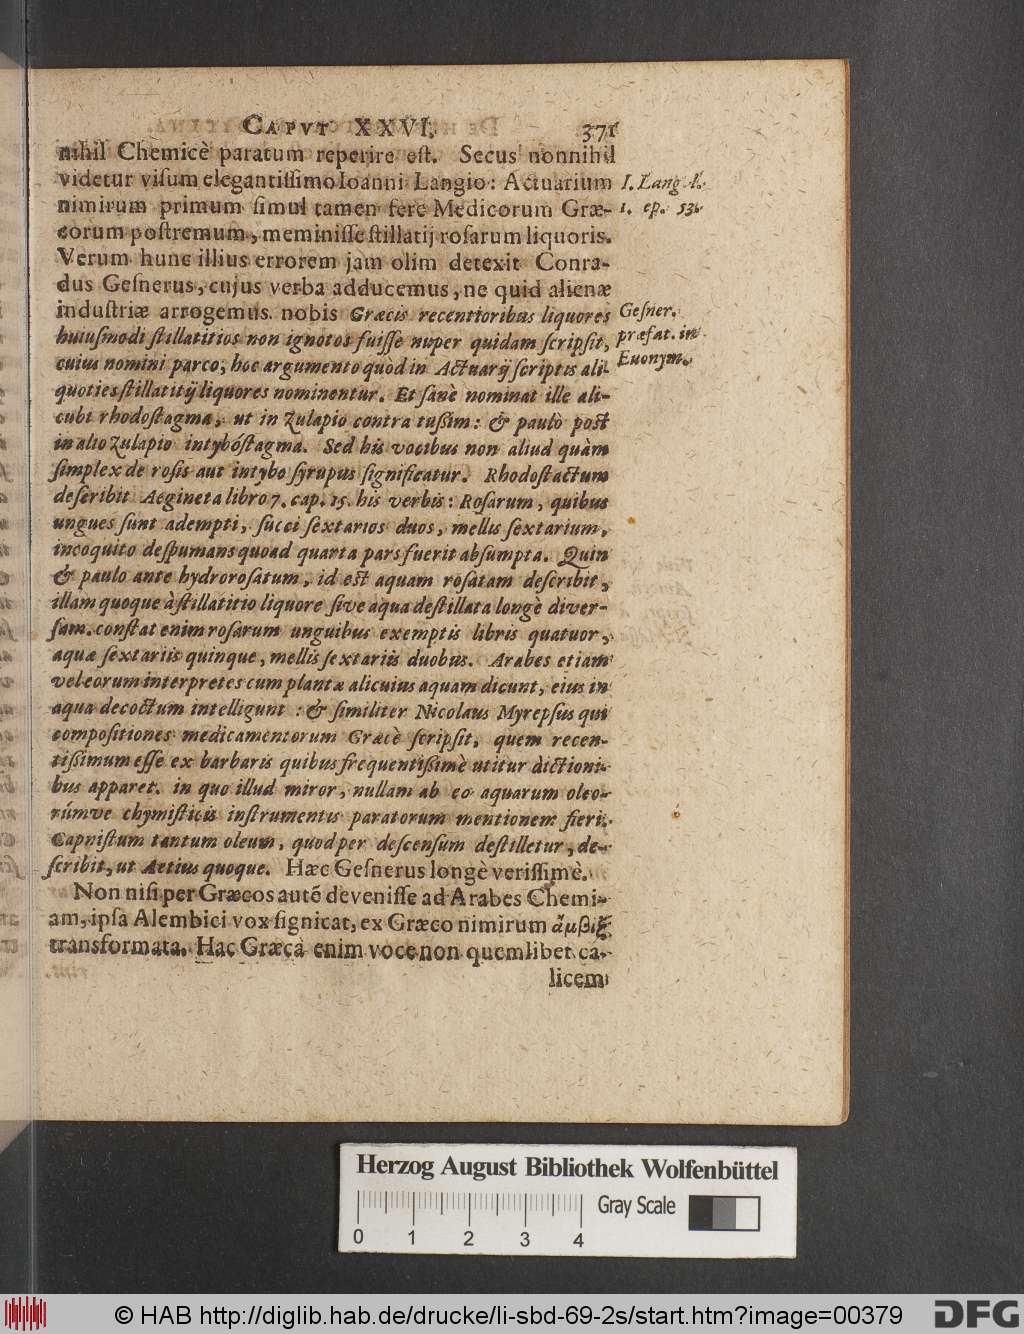 CAPVT XXVI. 371
nihil Chemicè paratum reperire est. Secus nonnihil
videtur visum elegantissimo Ioanni Langio: Actuarium
I. Lang. l.
nimirum primum simul tamen fere Medicorum Græ-
1. ep. 53.
corum postremum, meminisse stillatij rosarum liquoris.
Verum hunc illius errorem jam olim detexit Conra-
dus Gesnerus, cujus verba adducemus, ne quid alienæ
industriæ arrogemus nobis Græcis recentioribus liquores
Gesner.
huiusmodi stillatitios non ignotos fuisse nuper quidam scripsit,
præfat. in
cuius nomini parco, hoc argumento quòd in Actuarij scriptis ali-
Euonym.
quoties stillatitij liquores nominentur. Et sanè nominat ille ali-
cubi rhodostagma, ut in Zulapio contra tussim: & paulò post
in alio Zulapio intybóstagma. Sed his vocibus non aliud quàm
simplex de rosis aut intybo syrupus significatur. Rhodostactum
describit Aegineta libro 7. cap. 15. his verbis: Rosarum, quibus
ungues sunt adempti, succi sextarios duos, mellis sextarium,
incoquito despumans quoad quarta pars fuerit absumpta. Quin
& paulo ante hydrorosatum, id est aquam rosatam describit,
illam quoque à stillatitio liquore sive aqua destillata longè diver-
sam. constat enim rosarum unguibus exemptis libris quatuor,
aquæ sextariis quinque, mellis sextariis duobus. Arabes etiam
vel eorum interpretes cum plantæ alicuius aquam dicunt, eius in
aqua decoctum intelligunt: & similiter Nicolaus Myrepsus qui
compositiones medicamentorum Græcè scripsit, quem recen-
tissimum esse ex barbaris quibus frequentissimè utitur dictioni-
bus apparet. in quo illud miror, nullam ab eo aquarum oleo-
rúmve chymisticis instrumentis paratorum mentionem fieri.
Capnistum tantum oleum, quod per descensum destilletur, de-
scribit, ut Aetius quoque. Hæc Gesnerus longè verissimè.
Non nisi per Græcos autẽ devenisse ad Arabes Chemi-
am, ipsa Alembici vox signicat, ex Græco nimirum ἄμβιξ
transformata. Hac Græcà enim voce non quemlibet ca-
licem
Herzog August Bibliothek Wolfenbüttel
Gray Scale
0 1 2 3 4
© HAB http://diglib.hab.de/drucke/li-sbd-69-2s/start.htm?image=00379
DFG